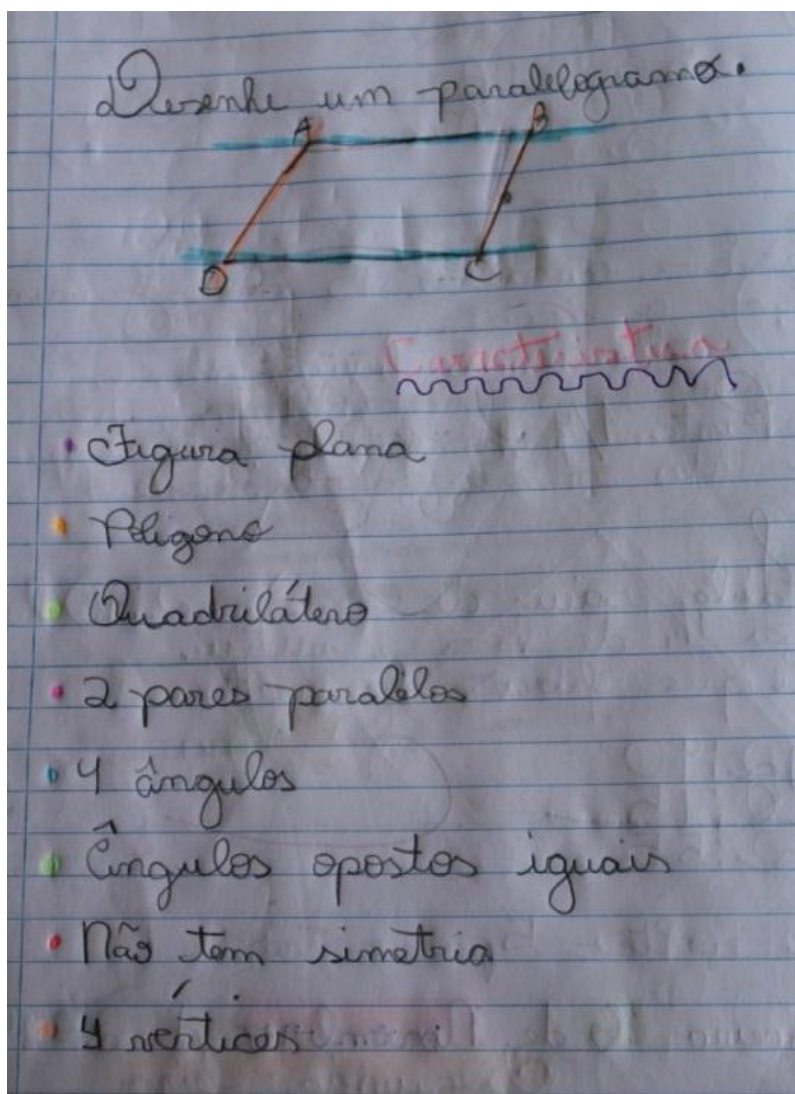 Desenhe um paralelogramo.
A B
D C
Característica
Figura plana
Polígono
Quadrilátero
2 pares paralelos
4 ângulos
Ângulos opostos iguais
Não tem simetria
4 vértices